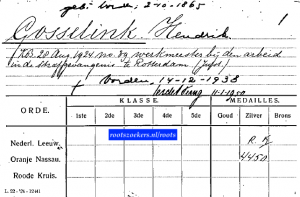 geb: Vorden, 2-10-1865
1
Gosselink, Hendrik
K.B. 20 Aug. 1924 no. 89, werkmeester bij den arbeid
in de strafgevangenis te Rotterdam (Just.)
† Vorden, 14-12-1938
11-1-1950
ORDE. KLASSE. MEDAILLES.
1ste 2de 3de 4de 5de Goud Zilver Brons
rootszoekers.nl/roots
Nederl. Leeuw.
Oranje Nassau. 4450
Roode Kruis.